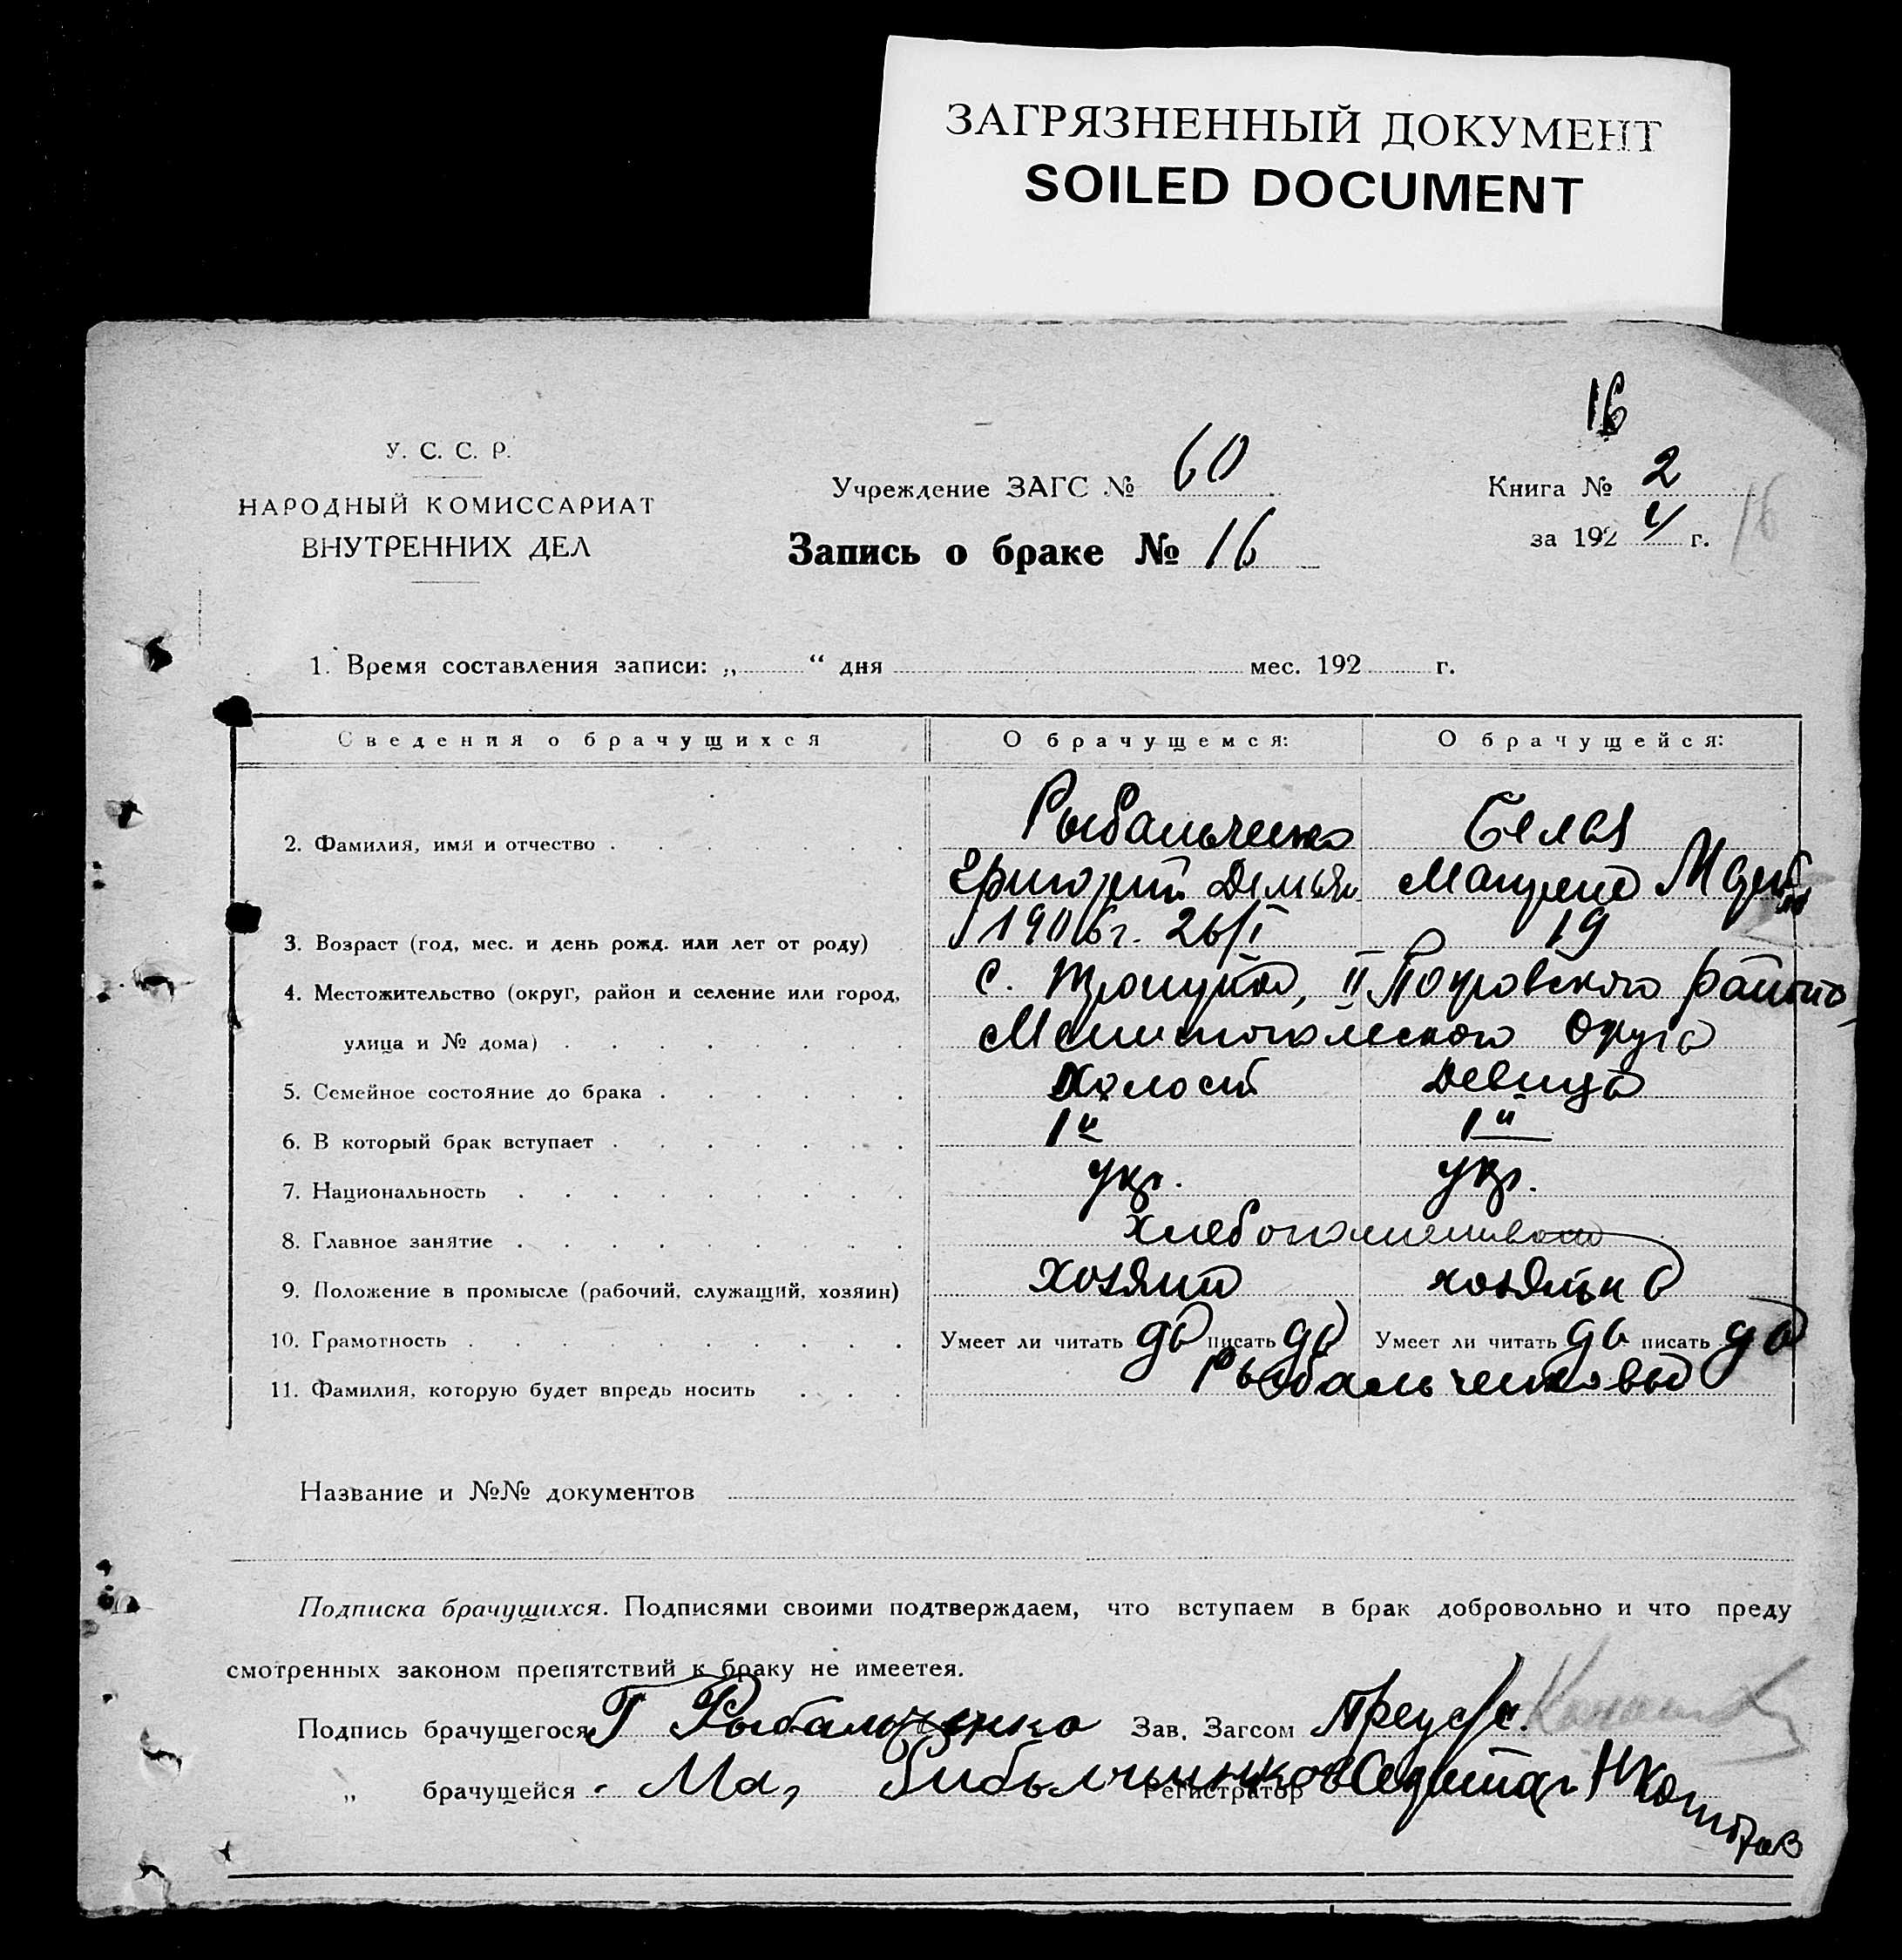 ЗАГРЯЗНЕННЫЙ ДОКУМЕНТ
SOILED DOCUMENT
16
У. С. С. Р.
НАРОДНЫЙ КОМИССАРИАТ
ВНУТРЕННИХ ДЕЛ
Учреждение ЗАГС № 60
Запись о браке № 16
Книга № 2
за 1924 г.
16
1. Время составления записи: „ “ дня мес. 192 г.
Сведения о брачущихся О брачущемся: О брачущейся:
2. Фамилия, имя и отчество Рыбальченко Белая
Григорий Демьян
3. Возраст (год, мес. и день рожд. или лет от роду) 1906 г. 26/I 19
4. Местожительство (округ, район и селение или город, с. Троицкое, II Покровского района
улица и № дома) Мелитопольского Округа
5. Семейное состояние до брака Холост Девица
6. В который брак вступает 1й 1й
7. Национальность укр. укр.
8. Главное занятие хлебопашество
9. Положение в промысле (рабочий, служащий, хозяин) Хозяин хозяйка
10. Грамотность Умеет ли читать да писать да Умеет ли читать да писать да
11. Фамилия, которую будет впредь носить Рыбальченковы
Название и №№ документов
Подписка брачущихся. Подписями своими подтверждаем, что вступаем в брак добровольно и что преду
смотренных законом препятствий к браку не имеетея.
Подпись брачущегося Г Рыбальченко Зав. Загсом Пред с/с.
„ брачущейся Ма, Регистратор